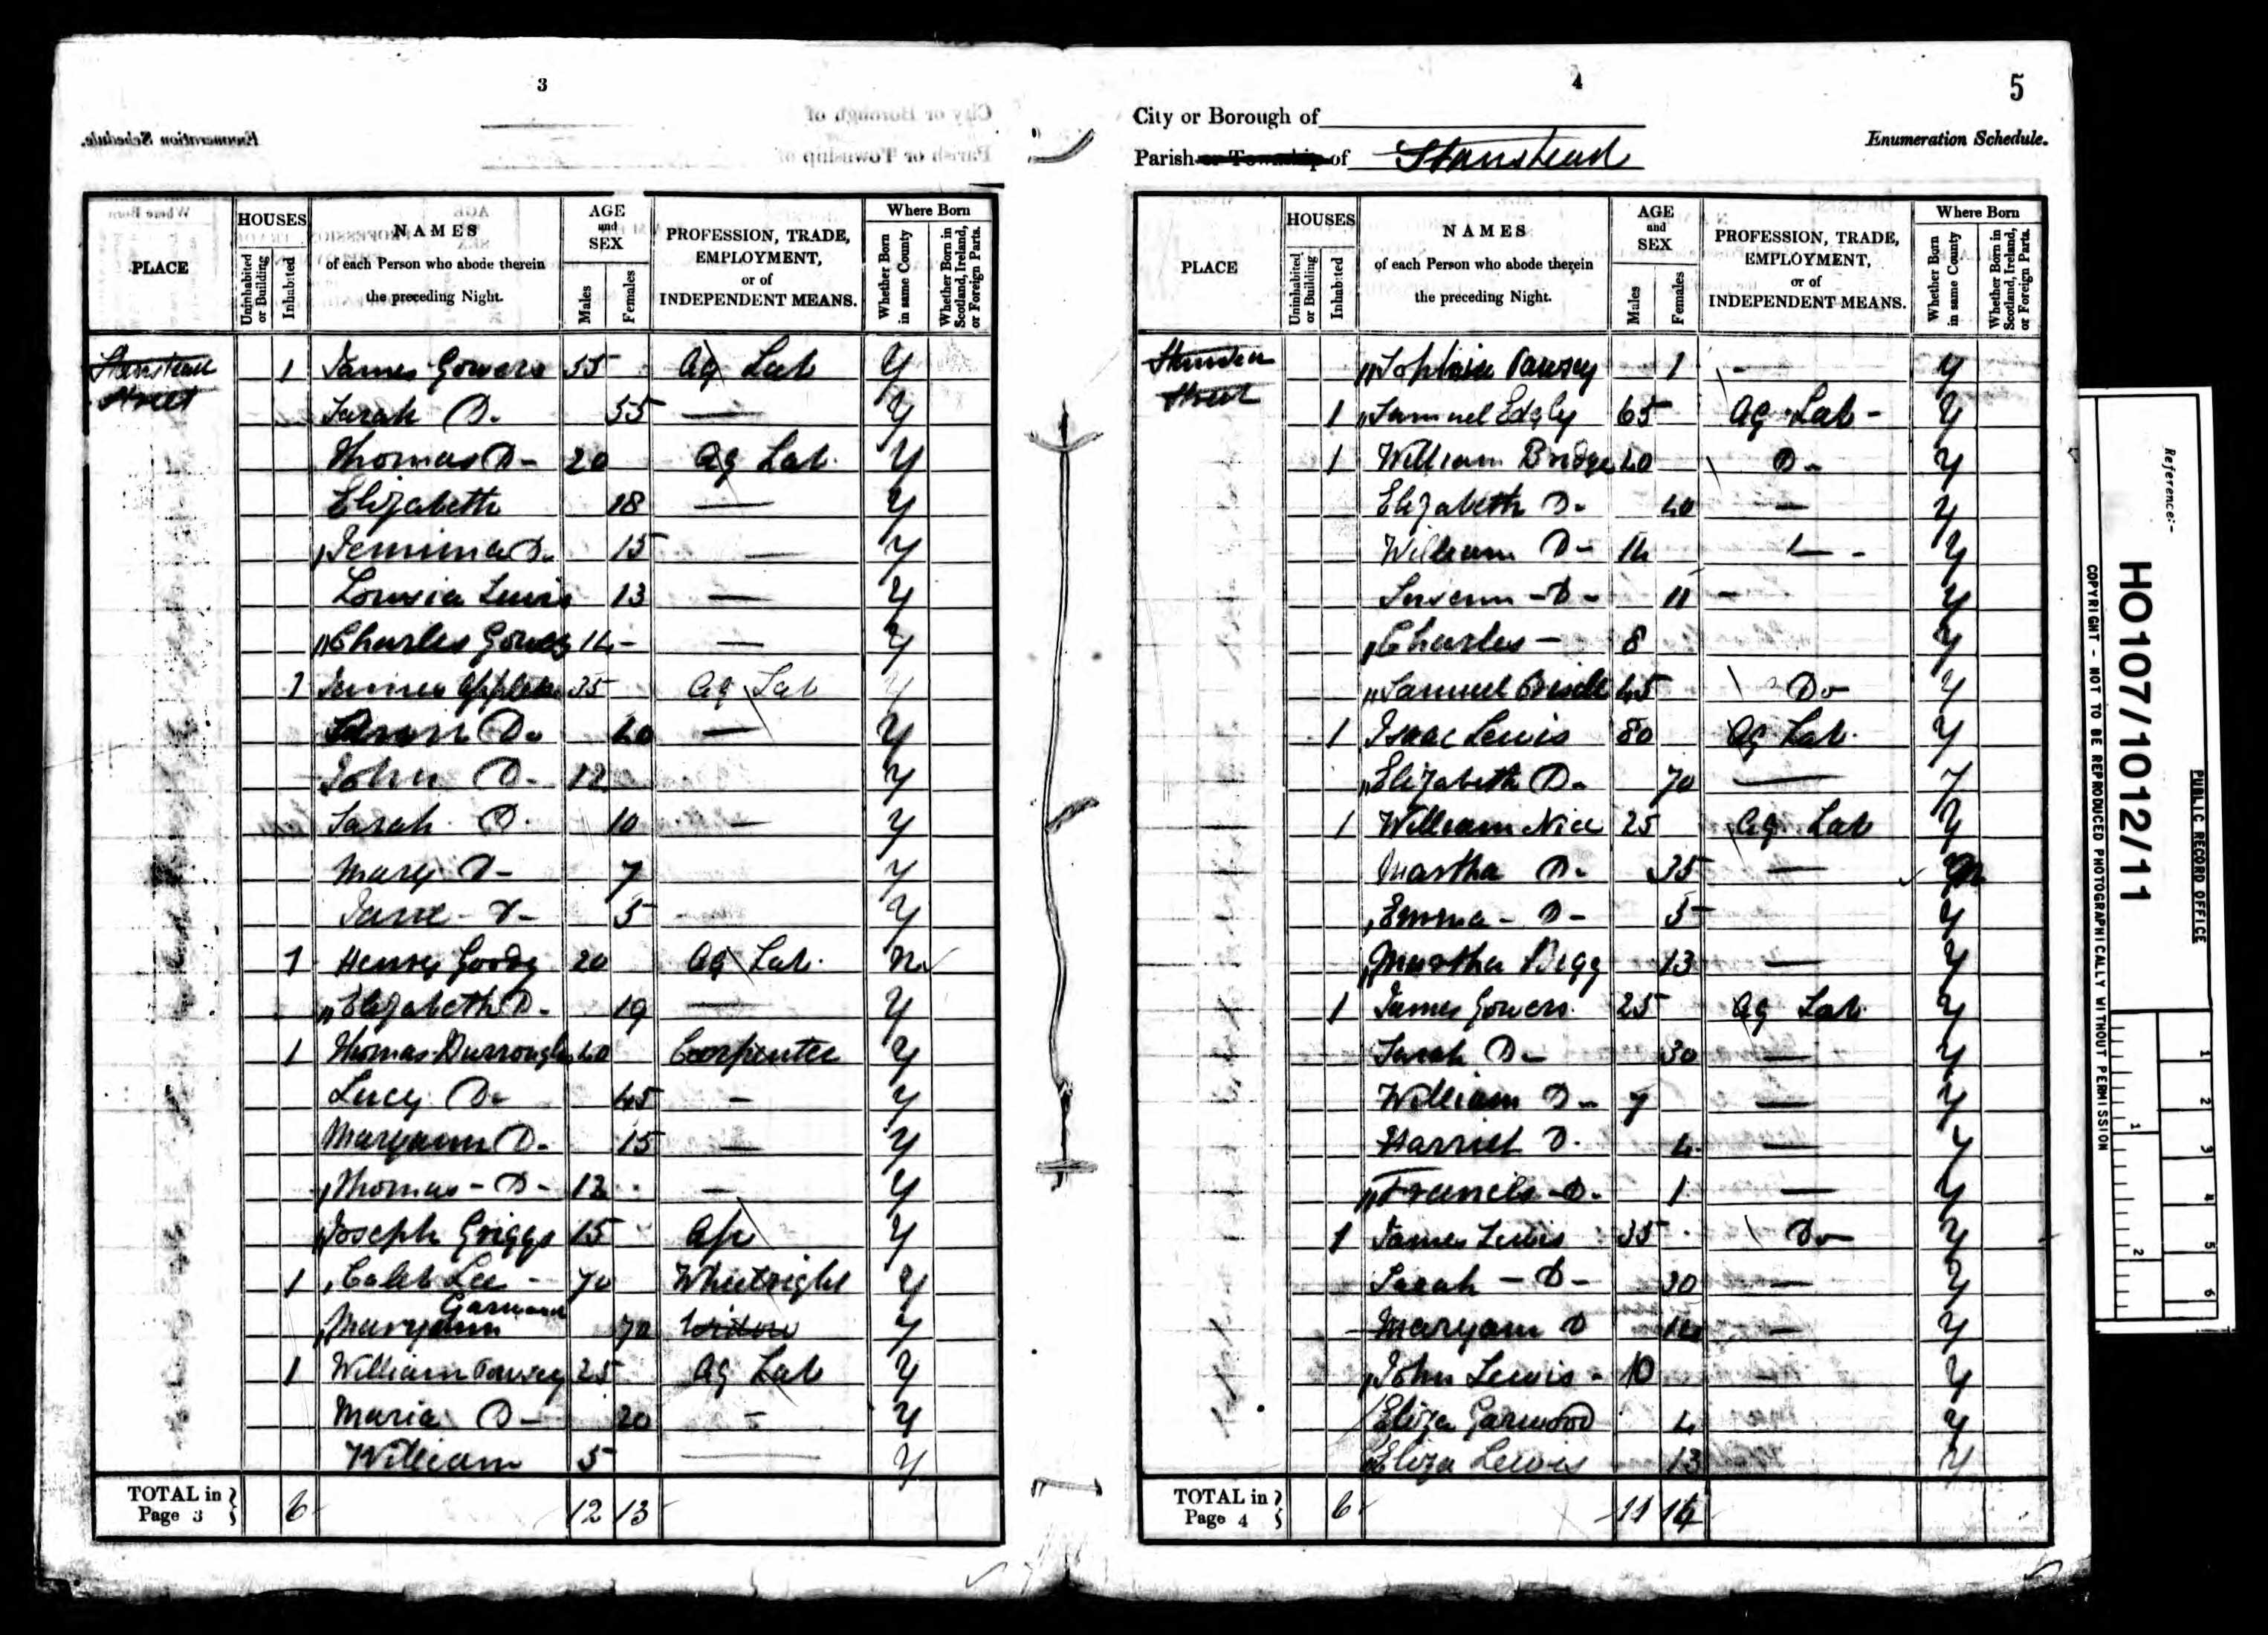 3
HOUSES
NAMES
AGE
and
SEX
PROFESSION, TRADE,
EMPLOYMENT,
or of
INDEPENDENT MEANS.
Where Born
PLACE
Uninhabited or Building
Inhabited
of each Person who abode therein
the preceding Night.
Males
Females
Whether Born in same County
Whether Born in Scotland, Ireland, or Foreign Parts.
Stanstead 1 James Gowers 55 Ag Lab Y
Street Sarah Do 55 — Y
Thomas Do 20 Ag Lab Y
Elizabeth 18 — Y
Jemima Do 15 — Y
Lousia Lewis 13 — Y
Charles Gowers 14 — Y
1 James 35 Ag Lab Y
Do 40 — Y
John Do 12 Y
Sarah Do 10 — Y
Mary Do 7 Y
Jane Do 5 - Y
1 Henry Goody 20 Ag Lab N
Elizabeth Do 19 — Y
1 Thomas Durrough 40 Carpenter Y
Lucy Do 45 - Y
Maryann Do 15 — Y
Thomas - Do 12 — Y
Joseph Griggs 15 Ap Y
1 Caleb Lee - 70 Wheelright Y
Garwood
Maryann 70 Widow Y
1 William Pawsey 25 Ag Lab Y
Maria Do 20 - Y
William 5 — Y
TOTAL in Page 3 } 6 12 13
4
5
City or Borough of
Parish or Township of Stanstead
Enumeration Schedule.
HOUSES
NAMES
AGE
and
SEX
PROFESSION, TRADE,
EMPLOYMENT,
or of
INDEPENDENT MEANS.
Where Born
PLACE
Uninhabited or Building
Inhabited
of each Person who abode therein
the preceding Night.
Males
Females
Whether Born in same County
Whether Born in Scotland, Ireland, or Foreign Parts.
Sophia Pawsey 1 — Y
Street 1 Samuel Edgly 65 Ag Lab - Y
1 William Bridge 40 Do Y
Elizabeth Do 40 — Y
William Do 14 — Y
Susann - Do 11 - Y
Charles - 8 Y
Samuel 45 Do Y
1 Isaac Lewis 80 Ag Lab Y
Elizabeth Do 70 — Y
1 William Nice 25 Ag Lab Y
Martha Do 35 —
Emma - Do 5 Y
Martha Bigg 13 — Y
1 James Gowers 25 Ag Lab Y
Sarah Do 30 — Y
William Do 7 — Y
Harriet Do 4 — Y
Francis Do 1 — Y
1 James Lewis 35 Do Y
Sarah - Do 30 — Y
Maryann Do 14 — Y
John Lewis - 10 Y
Eliza Garwood 4 Y
Eliza Lewis 13 Y
TOTAL in Page 4 } 6 11 14
Reference:-
HO107/1012/11
PUBLIC RECORD OFFICE
COPYRIGHT - NOT TO BE REPRODUCED PHOTOGRAPHICALLY WITHOUT PERMISSION
1
2
3
4
5
6
1
2